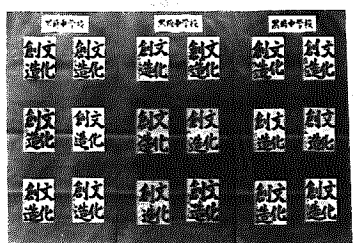 中学校
中学校
中学校
文化
創造
文化
創造
文化
創造
文化
創造
文化
創造
文化
創造
文化
創造
文化
創造
文化
創造
文化
創造
文化
創造
文化
創造
文化
創造
文化
創造
文化
創造
文化
創造
文化
創造
文化
創造